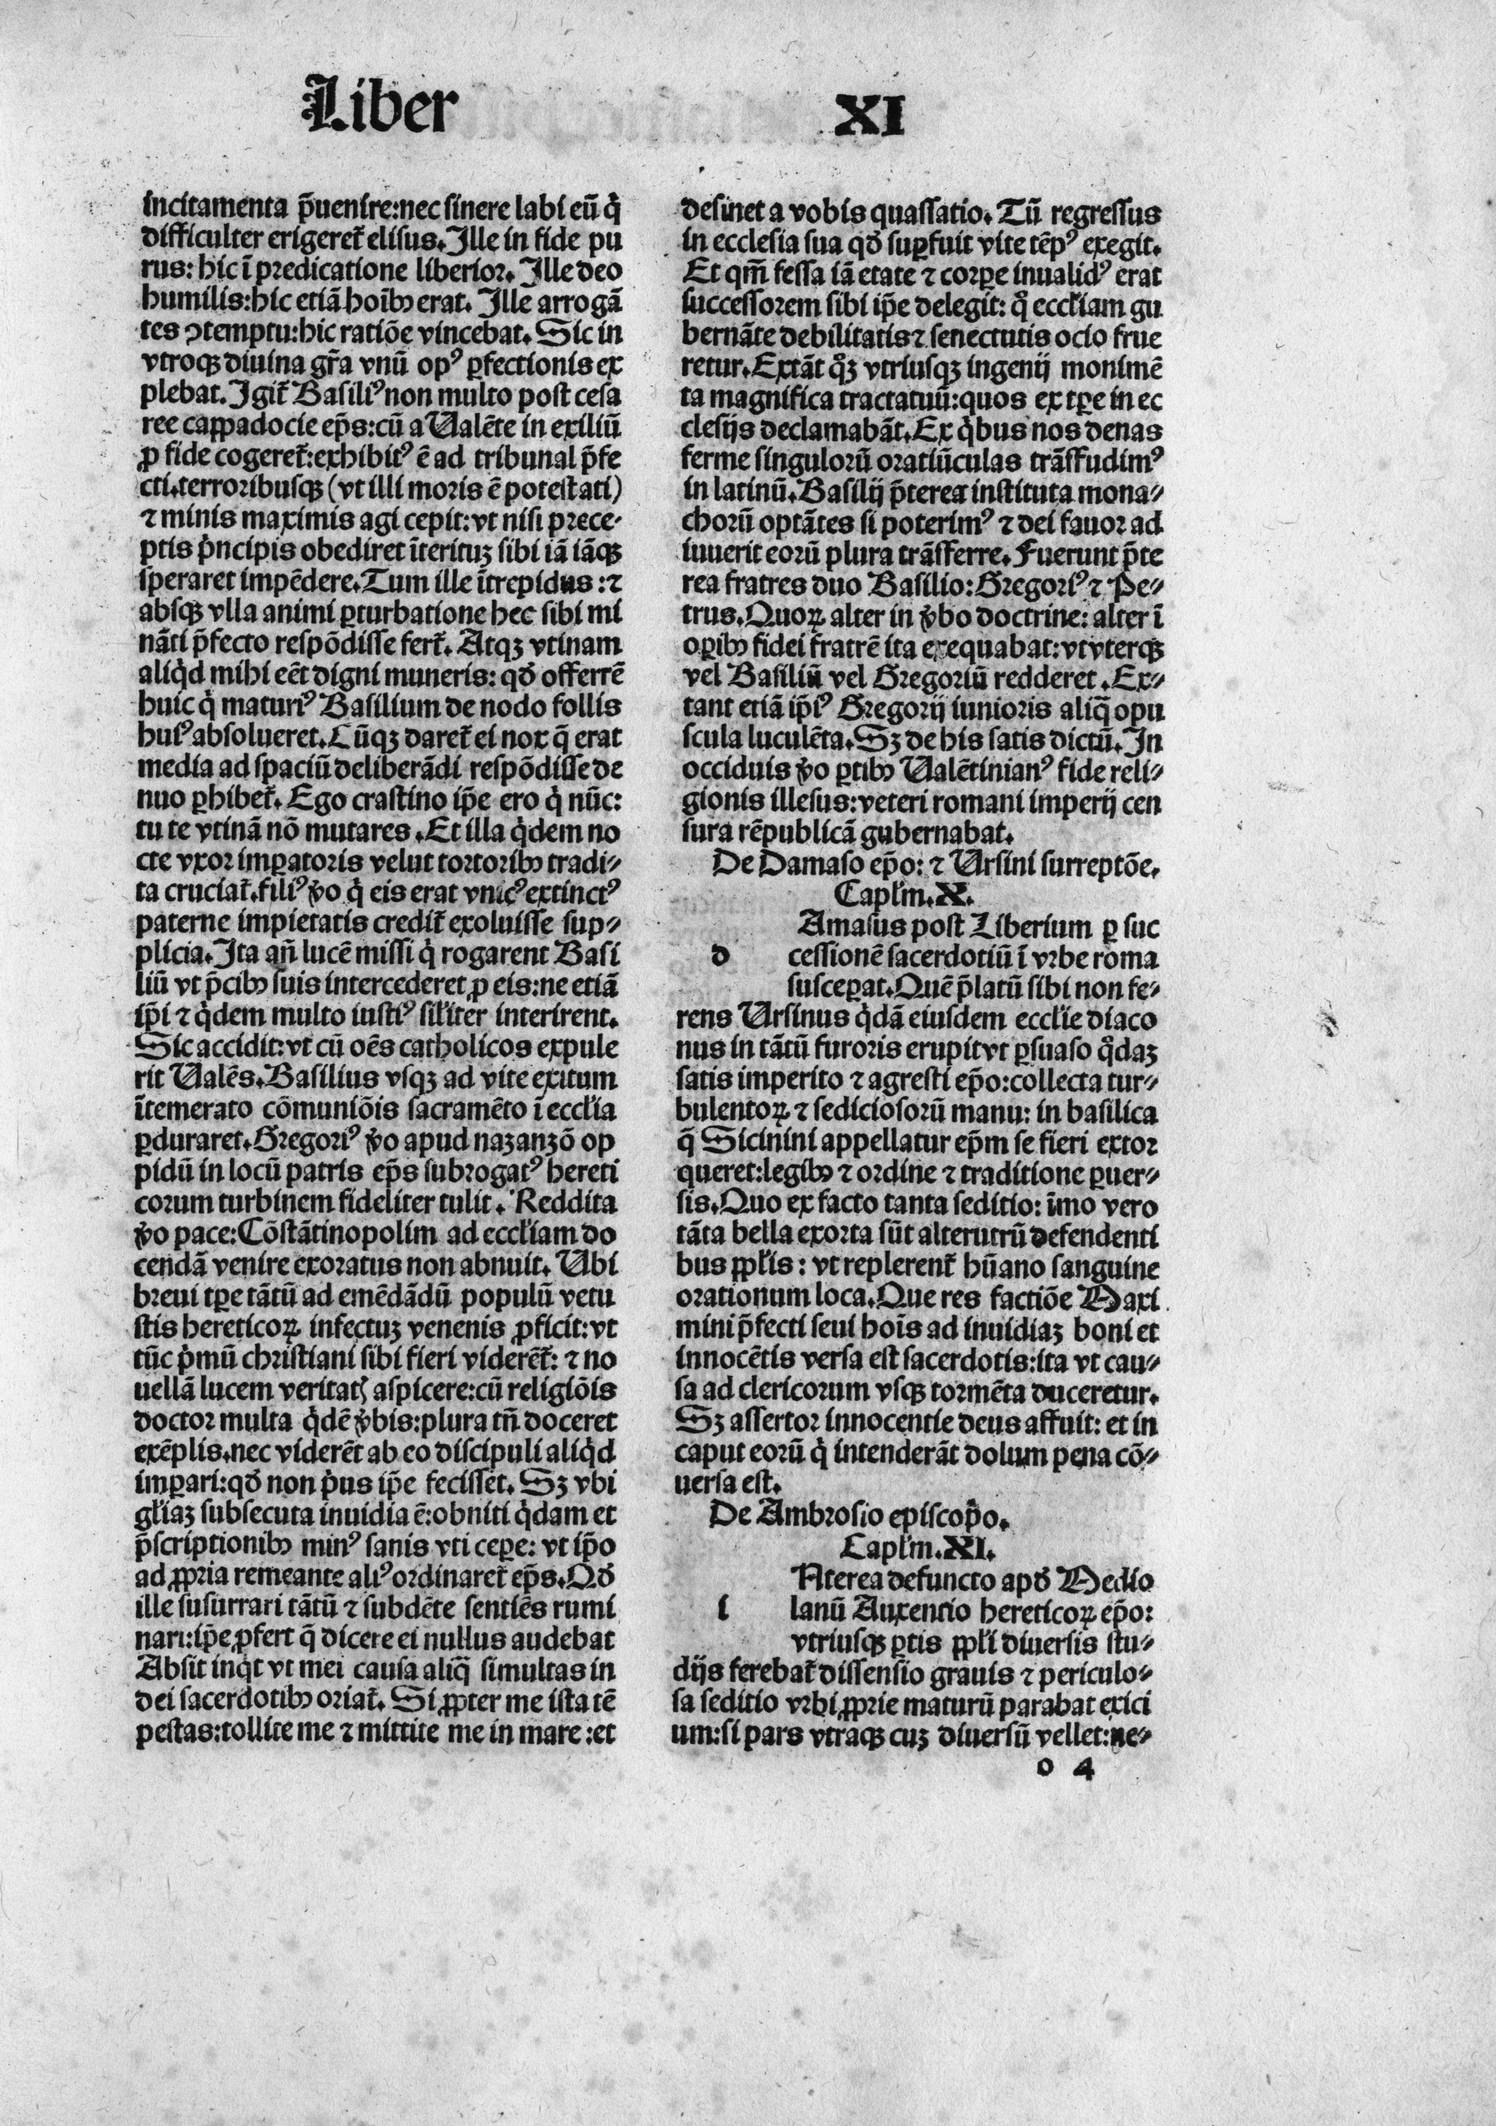 Liber XI
incitamenta p̄uenire:nec sinere labi eū q̇
difficulter erigeret̃ elisus. Ille in fide pu
rus: hic ī predicatione liberior. Ille deo
humilis:hic etiā hoībꝫ erat. Ille arrogā
tes ꝯtemptu:hic ratiōe vincebat. Sic in
vtroqꝫ diuina gr̄a vnū opꝰ ꝑfectionis ex
plebat. Igit̃ Basiliꝰ non multo post cesa
ree cappadocie ep̄s:cū a Ualēte in exiliū
ꝓ fide cogeret̃:exhibitꝰ ē ad tribunal p̄fe
cti.terroribusqꝫ (vt illi moris ē potestati)
⁊ minis maximis agi cepit:vt nisi prece-
ptis ṗncipis obediret īterituꝫ sibi iā iāqꝫ
speraret impēdere. Tum ille ītrepidus:⁊
absqꝫ vlla animi ꝑturbatione hec sibi mi
nāti p̄fecto respōdisse fert̃. Atqꝫ vtinam
aliq̇d mihi eēt digni muneris: qđ offerrē
huic q̇ maturiꝰ Basilium de nodo follis
huiꝰ absolueret. Cūqꝫ daret̃ ei nox q̄ erat
media ad spaciū deliberādi respōdisse de
nuo ꝑhibet̃. Ego crastino ip̄e ero q̇ nūc:
tu te vtinā nō mutares. Et illa q̇dem no
cte vxor imꝑatoris velut tortoribꝫ tradi-
ta cruciat̃. filiꝰ ṽo q̇ eis erat vnicꝰ extinctꝰ
paterne impietatis credit̃ exoluisse sup-
plicia. Ita an̄ lucē missi q̇ rogarent Basi
liū vt p̄cibꝫ suis intercederet ꝓ eis:ne etiā
ip̄i ⁊ q̇dem multo iustiꝰ sil̃iter interirent.
Sic accidit:vt cū oēs catholicos expule
rit Ualēs. Basilius vsqꝫ ad vite exitum
ītemerato cōmuniōis sacramēto ī eccl̃ia
ꝑduraret. Gregoriꝰ ṽo apud nazanzō op
pidū in locū patris ep̄s subrogatꝰ hereti
corum turbinem fideliter tulit. Reddita
ṽo pace:Cōstātinopolim ad eccl̃iam do
cendā venire exoratus non abnuit. Ubi
breui tꝑe tātū ad emēdādū populū vetu
stis hereticoꝝ infectuꝫ venenis ꝓficit:vt
tūc ṗmū christiani sibi fieri viderēt̃: ⁊ no
uellā lucem veritatꝭ aspicere:cū religiōis
doctor multa q̇dē ṽbis:plura tn̄ doceret
exēplis.nec viderēt ab eo discipuli aliq̇d
imꝑari:qđ non ṗus ip̄e fecisset. Sꝫ vbi
gl̃iaꝫ subsecuta inuidia ē:obniti q̇dam et
p̄scriptionibꝫ minꝰ sanis vti cepe: vt ip̄o
ad ꝓpria remeante aliꝰ ordinaret̃ ep̄s. Qđ
ille susurrari tātū ⁊ subdēte sentiēs rumi
nari:ip̄e ꝓfert q̄ dicere ei nullus audebat
Absit inqͥt vt mei causa aliq̄ simultas in
dei sacerdotibꝫ oriat̃. Si ꝓpter me ista tē
pestas:tollite me ⁊ mittite me in mare:et
desinet a vobis quassatio. Tū regressus
in ecclesia sua qđ suꝑfuit vite tēpꝰ exegit.
Et qm̄ fessa iā etate ⁊ corꝑe inualidꝰ erat
successorem sibi ip̄e delegit: q̊ eccl̃iam gu
bernāte debilitatis ⁊ senectutis ocio frue
retur. Extāt q̊ꝫ vtriusqꝫ ingenij monimē
ta magnifica tractatuū:quos ex tꝑe in ec
clesijs declamabāt. Ex q̇bus nos denas
ferme singulorū oratiūculas trāsfudimꝰ
in latinū. Basilij p̄terea instituta mona-
chorū optātes si poterimꝰ ⁊ dei fauor ad
iuuerit eorū plura trāsferre. Fuerunt p̄te
rea fratres duo Basilio:Gregoriꝰ ⁊ Pe-
trus. Quoꝝ alter in ṽbo doctrine: alter ī
oꝑibꝫ fidei fratrē ita exequabat:vt vterqꝫ
vel Basiliū vel Gregoriū redderet. Ex-
tant etiā ip̄iꝰ Gregorij iunioris aliq̄ opu
scula luculēta. Sꝫ de his satis dictū. In
occiduis ṽo ꝑtibꝫ Ualētinianꝰ fide reli-
gionis illesus:veteri romani imperij cen
sura rēpublicā gubernabat.
De Damaso ep̄o: ⁊ Ursini surreptōe.
Capl̃m.X.
Amasus post Liberium ꝑ suc
d cessionē sacerdotiū ī vrbe roma
susceꝑat. Quē p̄latū sibi non fe-
rens Ursinus q̇dā eiusdem eccl̃ie diaco
nus in tātū furoris erupit vt ꝑsuaso q̊daꝫ
satis imperito ⁊ agresti ep̄o:collecta tur-
bulentoꝝ ⁊ sediciosorū manu: in basilica
q̄ Sicinini appellatur ep̄m se fieri extor
queret:legibꝫ ⁊ ordine ⁊ traditione ꝑuer-
sis. Quo ex facto tanta seditio: īmo vero
tāta bella exorta sūt alterutrū defendenti
bus ppl̃is: vt replerent̃ hūano sanguine
orationum loca. Que res factiōe Maxi
mini p̄fecti seui hoīs ad inuidiaꝫ boni et
innocētis versa est sacerdotis:ita vt cau-
sa ad clericorum vsqꝫ tormēta duceretur.
Sꝫ assertor innocentie deus affuit: et in
caput eorū q̇ intenderāt dolum pena cō-
uersa est.
De Ambrosio episcop̄o.
Capl̃m.XI.
Nterea defuncto apđ Medio
i lanū Auxentio hereticoꝝ ep̄o:
vtriusqꝫ ꝑtis ppl̃i diuersis stu-
dijs ferebat̃ dissensio grauis ⁊ periculo-
sa seditio vrbi ꝓprie maturū parabat exici
um:si pars vtraqꝫ cuꝫ diuersū vellet:ne-
o 4